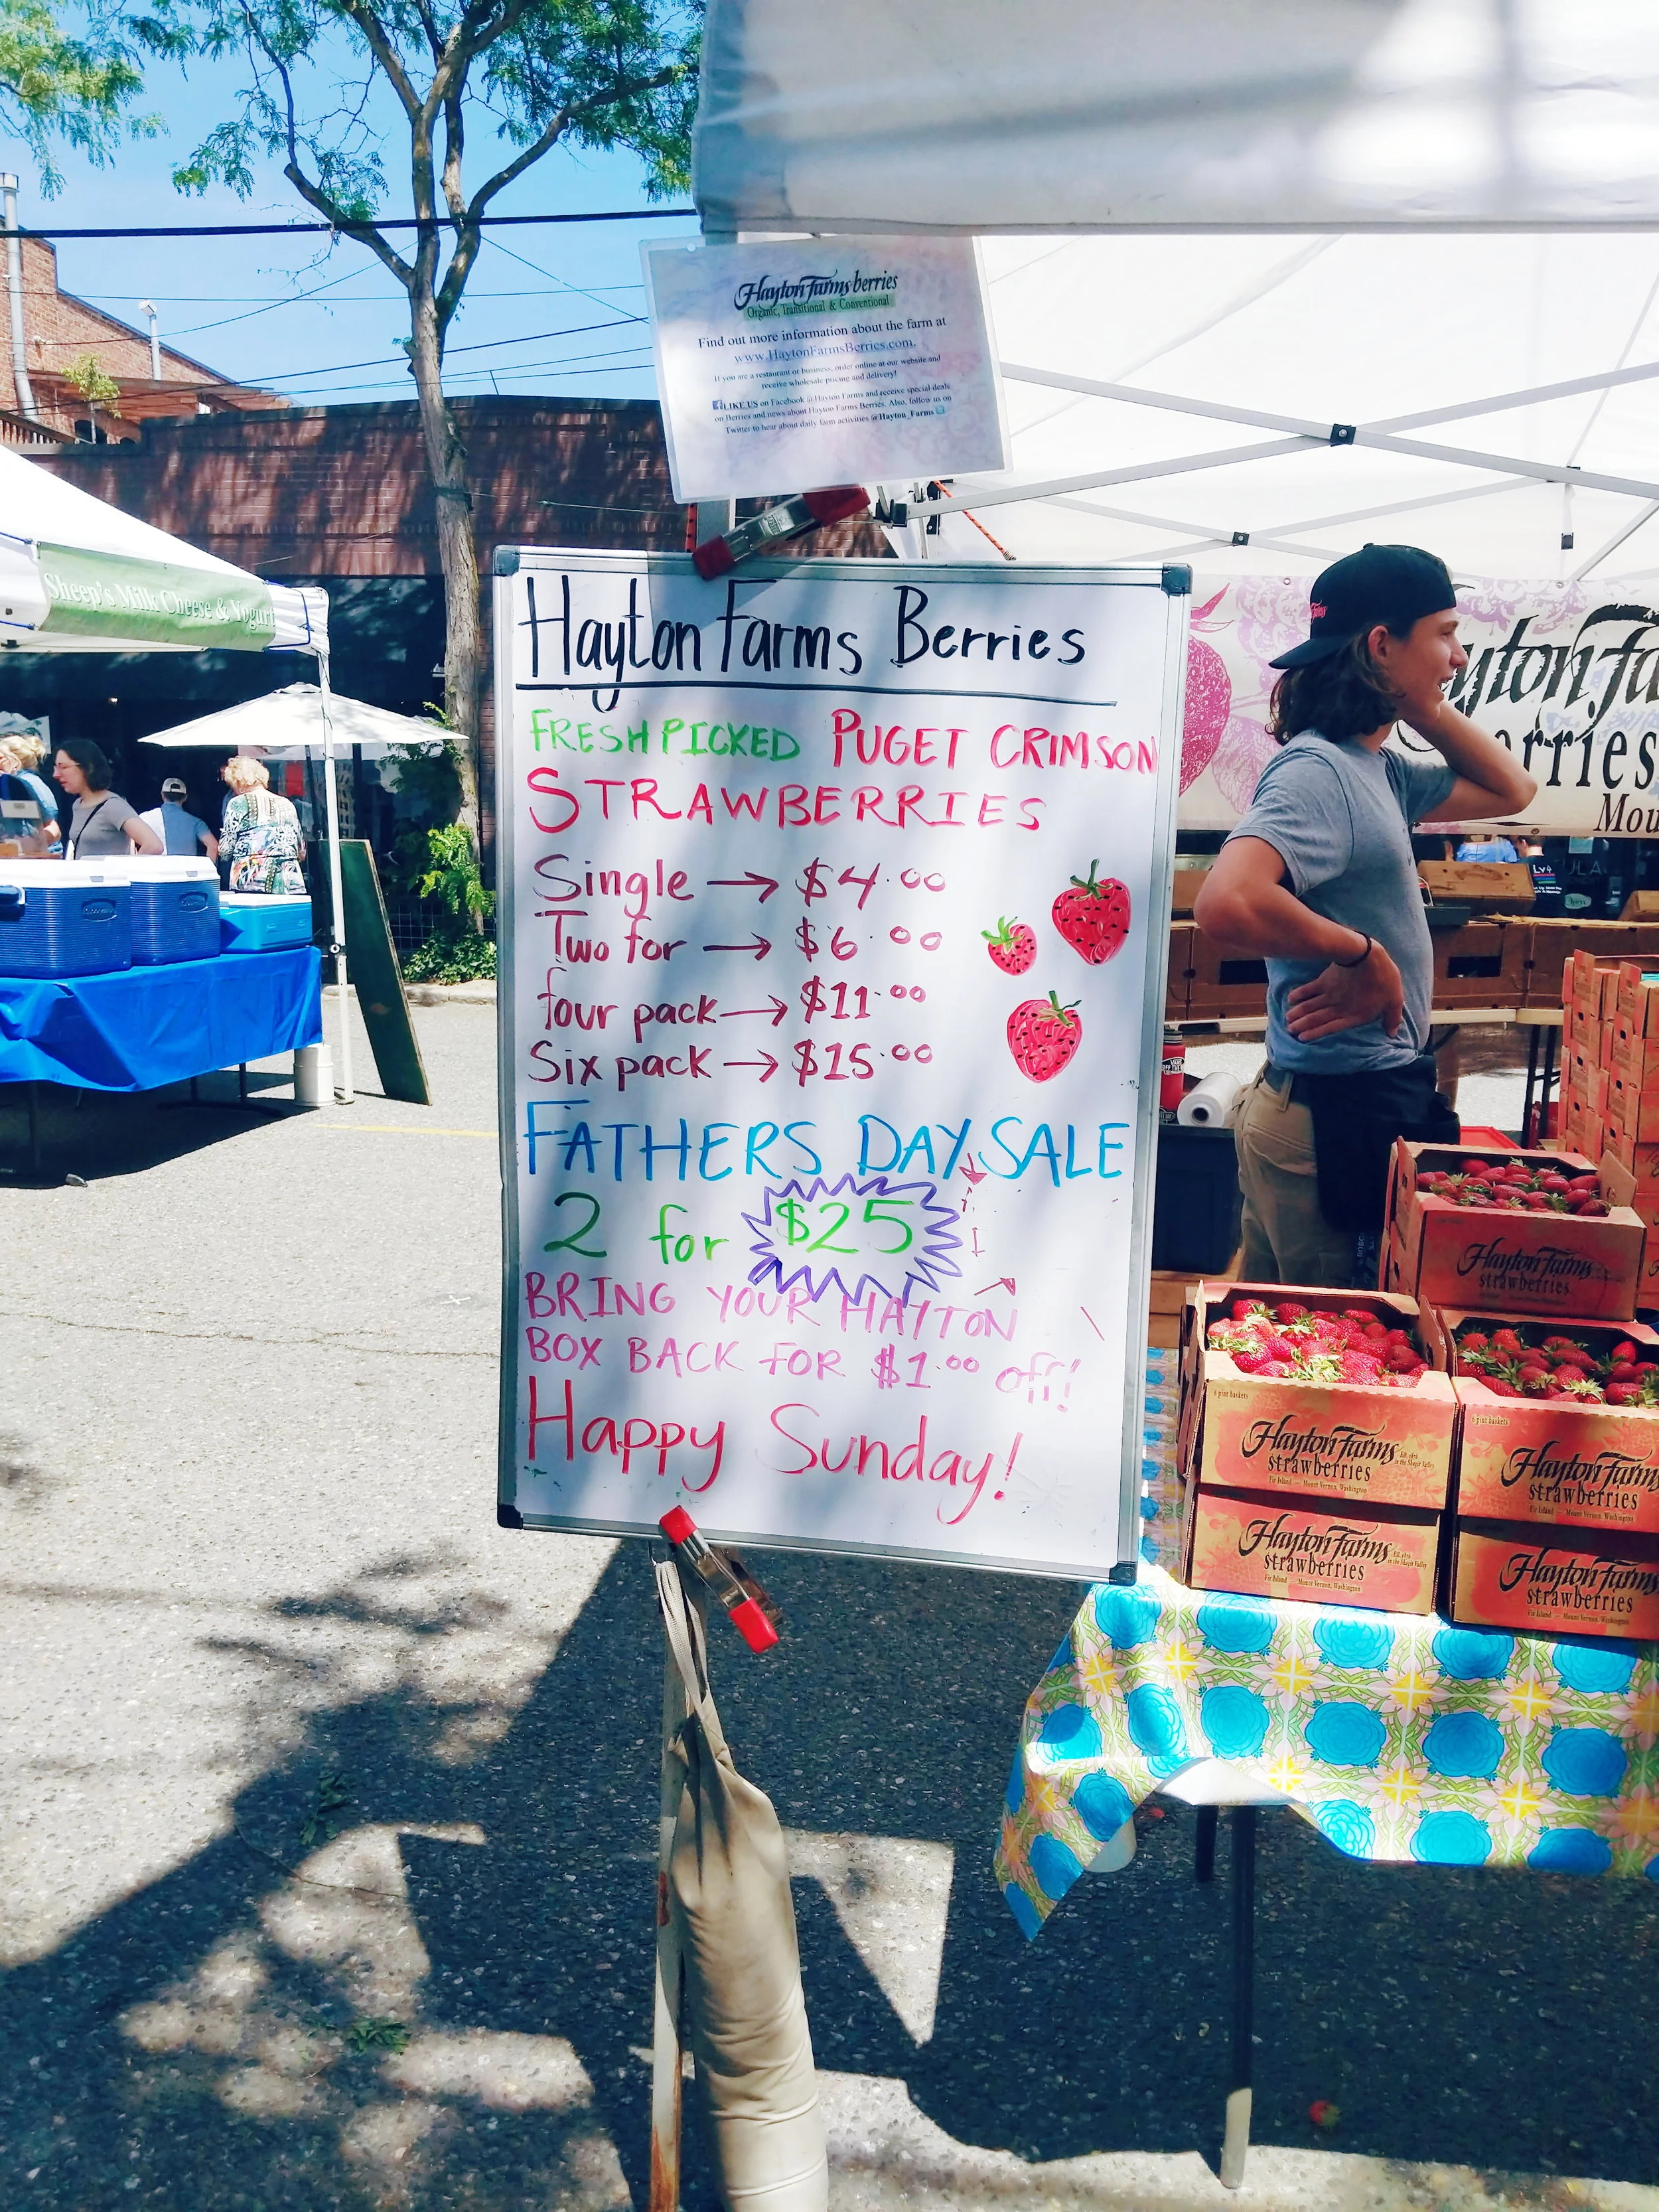 Hayton Farms berries
Organic, Transitional & Conventional
Find out more information about the farm at
www.HaytonFarmsBerries.com.
If you are a restaurant or business, order online at our website and
receive wholesale pricing and delivery!
LIKE US on Facebook @Hayton Farms and receive special deals
on Berries and news about Hayton Farms Berries. Also, follow us on
Twitter to hear about daily farm activities @Hayton_Farms
Sheep's Milk Cheese & Yogurt
Hayton Farms Berries
FRESH PICKED PUGET CRIMSON
STRAWBERRIES
Single → $4.00
Two for → $6.00
four pack → $11.00
Six pack → $15.00
FATHERS DAY SALE
2 for $25
BRING YOUR HAYTON
BOX BACK FOR $1.00 off!
Happy Sunday!
yton Fa
erries
Mou
Hayton Farms
strawberries
6 pint baskets
Hayton Farms
strawberries
Fir Island — Mount Vernon, Washington
6 pint baskets
Hayton Farms
strawberries
Fir Island — Mount Vernon, Washington
Hayton Farms
strawberries
Fir Island — Mount Vernon, Washington
Hayton Farms
strawberries
Fir Island — Mount Vernon, Washington